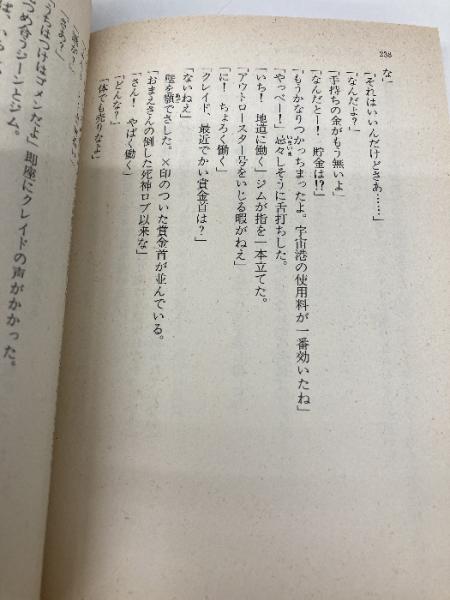 238
な」
「それはいいんだけどさあ……」
「なんだよ？」
「手持ちの金がもう無いよ」
「なんだとー！　貯金は!?」
「もうかなりつかっちまったよ。宇宙港の使用料が一番効いたね」
「やっべー！」忌々しそうに舌打ちした。
「いち！　地道に働く」ジムが指を一本立てた。
「アウトロースター号をいじる暇がねえ」
「に！　ちょろく働く」
「クレイド、最近でかい賞金首は？」
「ないねえ」
壁を顎でさした。×印のついた賞金首が並んでいる。
「おまえさんの倒した死神ロブ以来な」
「さん！　やばく働く」
「どんな？」
「体でも売りなよ」
つめ合うジーンとジム。
うちはつけはゴメンだよ」即座にクレイドの声がかかった。